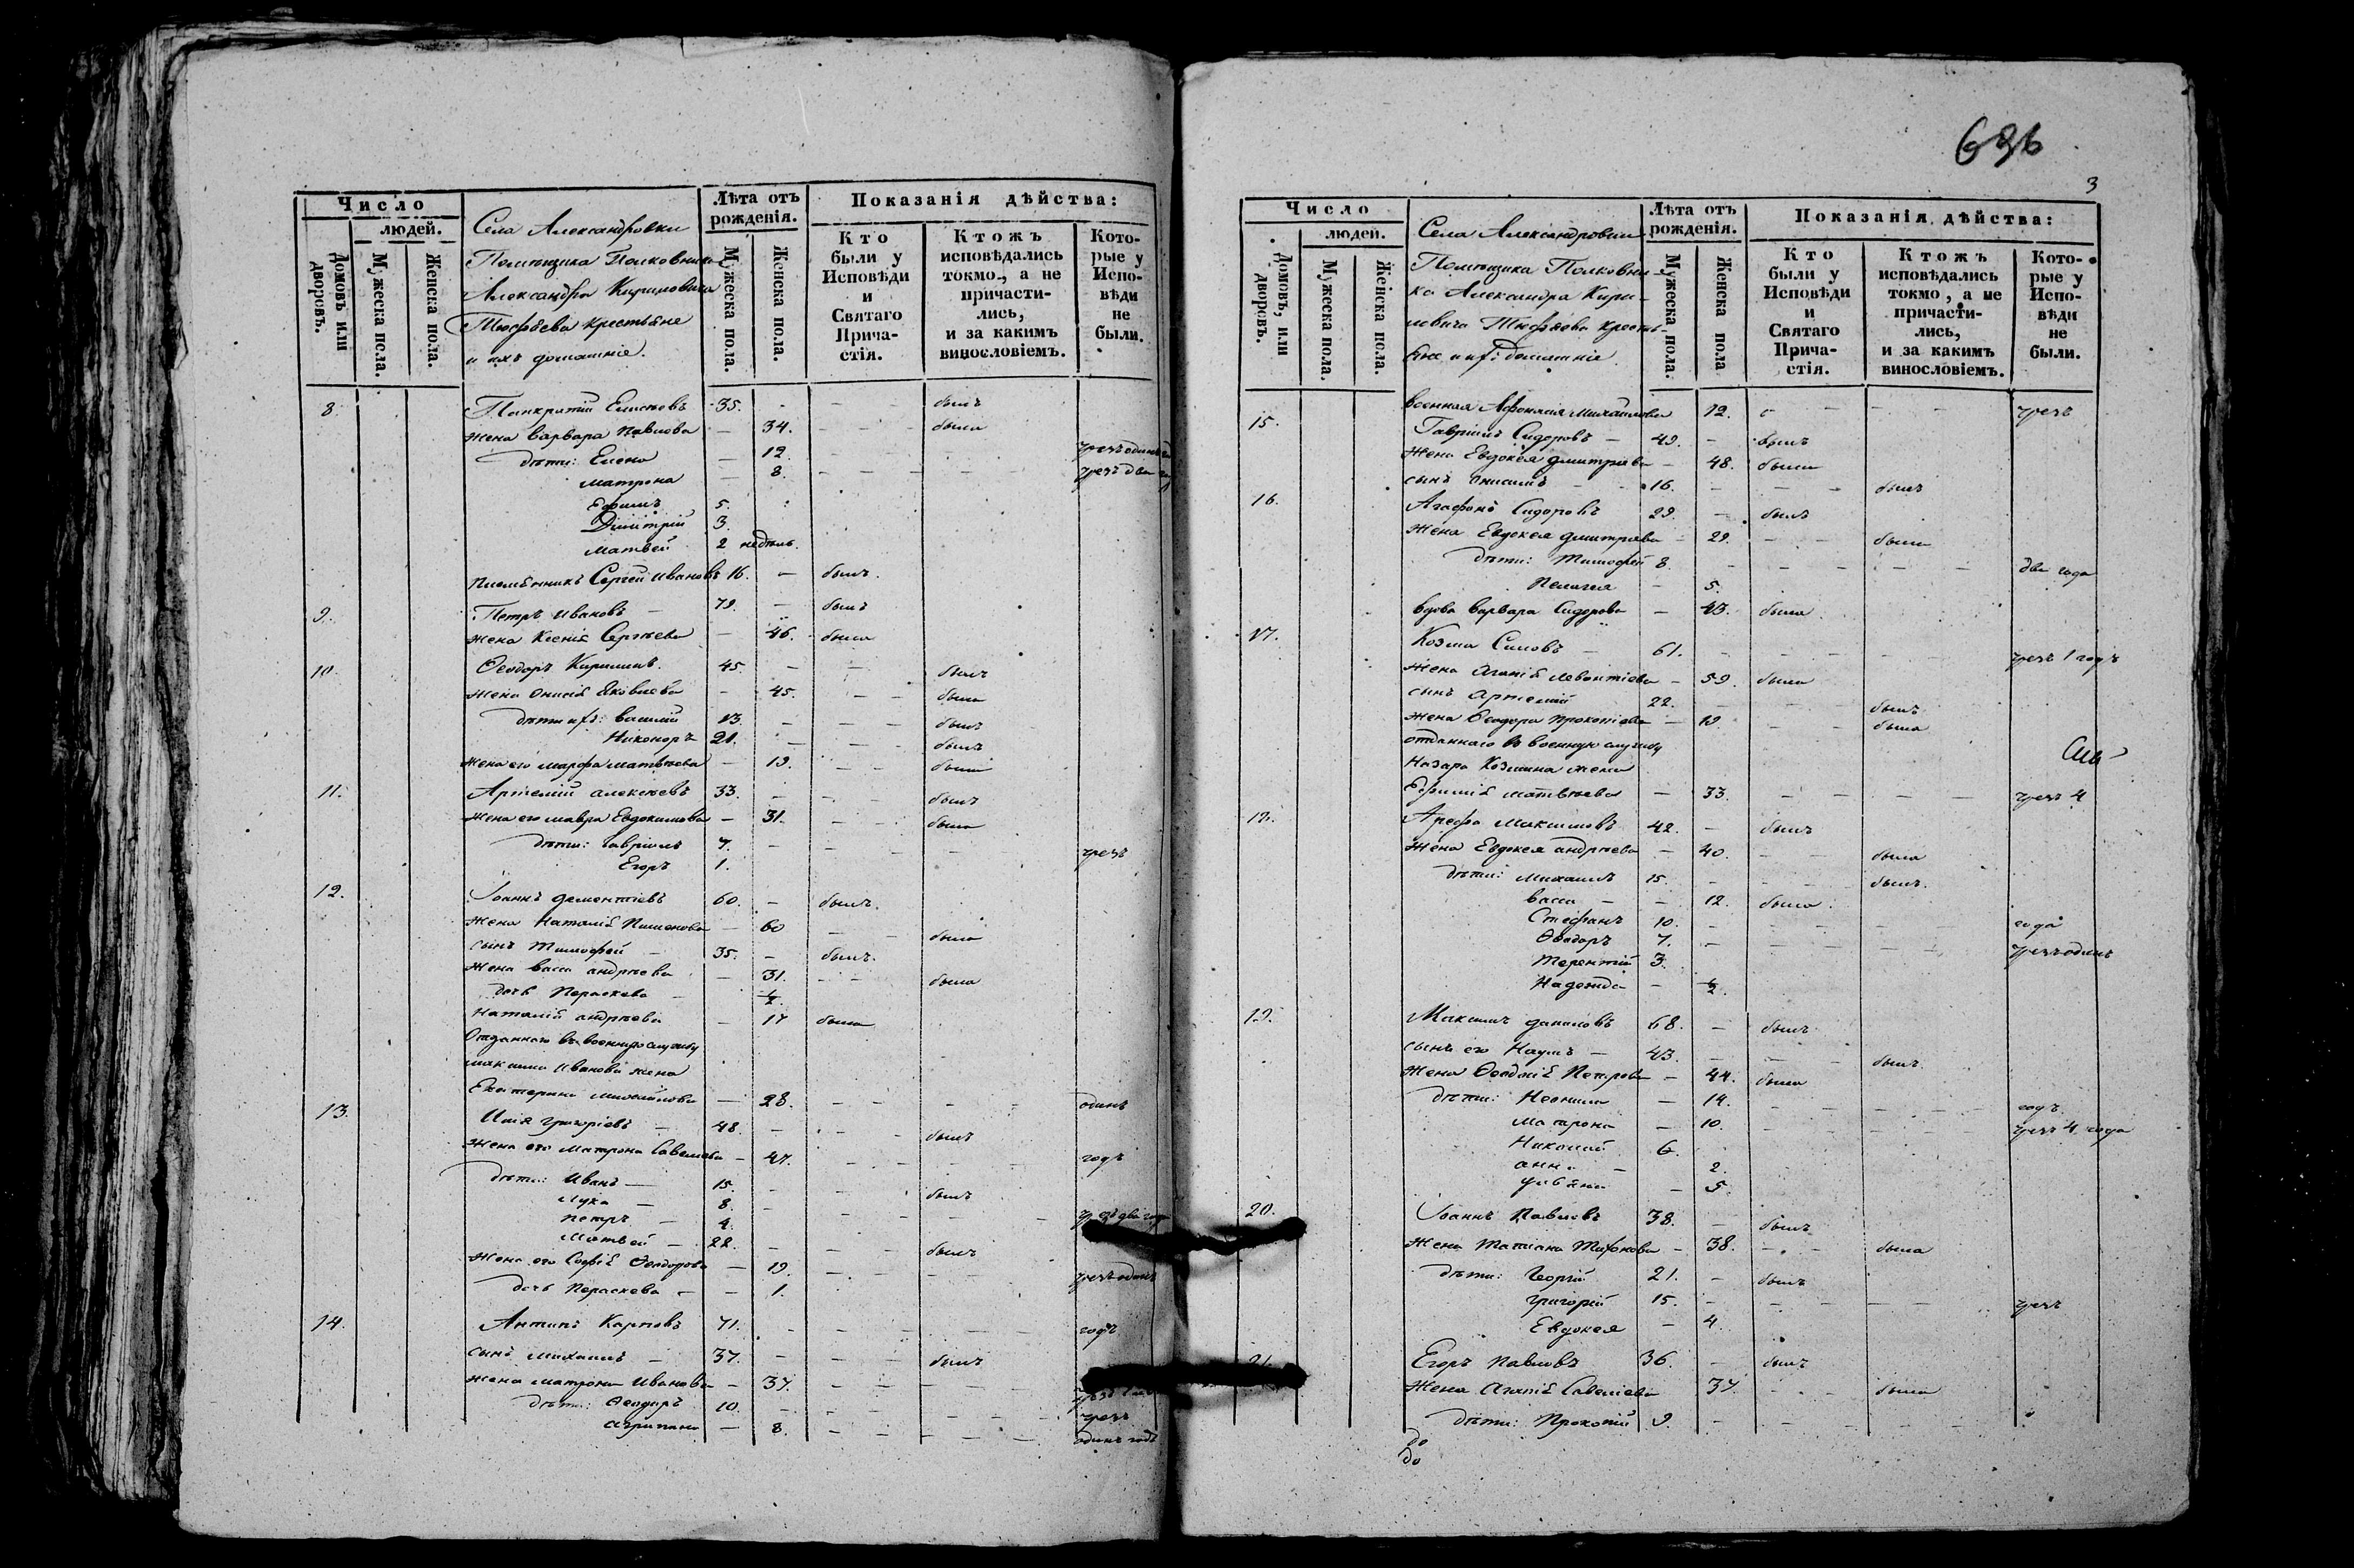 Число
людей.
Домовъ или дворовъ.
Мужеска пола.
Женска пола.
Села Александровки
Помѣщика Полковника
Александра Кириловича
Тюфѣева крестьяне
и ихъ домашніе.
Лѣта отъ рожденія.
Мужеска пола.
Женска пола.
Показанія дѣйства:
Кто были у Исповѣди и Святаго Причастія.
Ктожъ исповѣдались токмо, а не причастились, и за какимъ винословіемъ.
Которые у Исповѣди не были.
8. Панкратій Елисѣевъ 35. - - былъ
жена Варвара Павлова - 34. - - - была
дѣти: Елена - 12. - - чрезъ одинъ
Матрона - 8. - - - - - чрезъ два
Ефимъ 5.
Димитрій 3.
Матвей 2 недѣль.
племѣнникъ Сергей Ивановъ 16. - былъ.
9. Петръ Ивановъ - 79. - былъ
жена Ксенія Сергѣева - 46. была
10. Ѳеодоръ Кирилинъ. 45. - - былъ
жена Онисія Яковлева - 45. - - была
дѣти ихъ: Василій 23. - - - былъ
Никоноръ 21. - - - былъ
жена его Марфа Матвѣева - 19. - - была
11. Артемій Алексѣевъ 33. - - - былъ
жена его Мавра Евдокимова - 31. - - была
дѣти: Гавріилъ 7. - - - - чрезъ
Егоръ 1.
12. Іоаннъ Дементіевъ 60. - былъ.
жена Наталія Пименова - 60 - - была
сынъ Тимофей - 35. - былъ.
жена Васса Андрѣева - 31. - - была
дочь Параскева - ½.
Наталія Андрѣева - 17 была
Отданнаго въ военную службу
Максима Иванова жена
Екатерина Михайлова - 28. - - - - одинъ
13. Илія Григоріевъ - 48. - - - былъ
жена его Матрона Савельева - 47. - - - - годъ
дѣти: Иванъ - 15. - - былъ
Лука - 8. - - - - - чрезъ два года
Петръ - 4.
Матвей - 22. - - - былъ
жена его Софія Ѳеодорова - 19. - - - - чрезъ одинъ
дочь Параскева - - 1.
14. Антипъ Карповъ 71. - - - - - годъ
сынъ Михаилъ - 37. - - - былъ
жена Матрона Иванова - 37. - - - - -
дѣти: Ѳеодоръ 10. - - - - - - чрезъ
Агрипина - 8. - - - - - одинъ годъ
636
3
Число
людей.
Домовъ, или дворовъ.
Мужеска пола.
Женска пола.
Села Александровки
Помѣщика Полковни-
ка Александра Кири-
ловича Тюфѣева кресть-
яне и ихъ домашніе
Лѣта отъ рожденія.
Мужеска пола.
Женска пола
Показанія дѣйства:
Кто были у Исповѣди и Святаго Причастія.
Ктожъ исповѣдались токмо, а не причастились, и за какимъ винословіемъ.
Которые у Исповѣди не были.
военная Афонасія Михайлова 72. - - - - чрезъ
15. Гавріилъ Сидоровъ - 49. - былъ
жена Евдокея Дмитріева - 48. была
сынъ Онисимъ - 16. - - - былъ
16. Агафонъ Сидоровъ 29. - былъ
жена Евдокея Дмитріева - 29. - - была
дѣти: Тимофей 8. - - - - - два года
Пелагея - 5.
вдова Варвара Сидорова - 43. была
17. Козма Силовъ - 61. - - - - - чрезъ 1 годъ
жена Агапія Леонтіева - 59. была
сынъ Артемій 22. - - - былъ
жена Ѳеодора Прокопіева - 19 - - была
отданнаго въ военную службу
Назара Козмина жена
Ефимія Матвѣева - 33. - - - - чрезъ 4
18. Арефа Максимовъ 42. - былъ
жена Евдокея Андрѣева - 40. - - была
дѣти: Михаилъ 15. - - - былъ.
Васса - - 12. была
Стефанъ 10. - - - - - года
Ѳеодоръ 7. - - - - - чрезъ одинъ
Терентій 3.
Надежда - ½.
19. Максимъ Даниловъ 68. - былъ
сынъ его Наумъ - 43. - - - былъ.
жена Ѳеодосія Петрова - 44. была
дѣти: Неонила - 14. - - - - - годъ
Матрона - 10. - - - - - чрезъ 4 года
Николай 6.
Анна - 2.
Уліана - 5.
20. Іоаннъ Павловъ 38. - былъ
жена Татіана Тихонова - 38. - - была
дѣти: Георгій 21. - былъ
Григорій 15. - - - - - чрезъ
Евдокея - 4.
21. Егоръ Павловъ 36. - былъ
жена Агапія Савеліева 37. - - была
дѣти: Прокопій 9. - - - - -
до
до